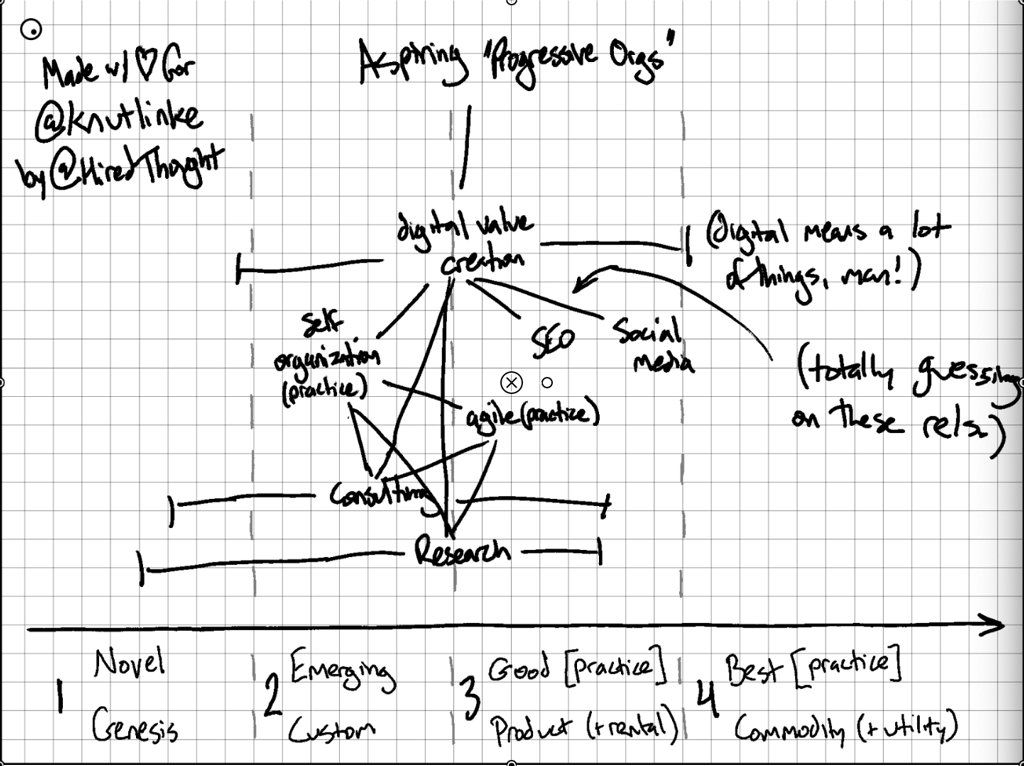 Made w/ ♡ for
@knutlinke
by @HiredThought
Aspiring "Progressive Orgs"
digital value
creation
(digital means a lot
of things, man!)
self
organization
(practice)
SEO
Social
media
(totally guessing
on these rels.)
agile (practice)
Consulting
Research
1 Novel
Genesis
2 Emerging
Custom
3 Good [practice]
Product (+rental)
4 Best [practice]
Commodity (+utility)